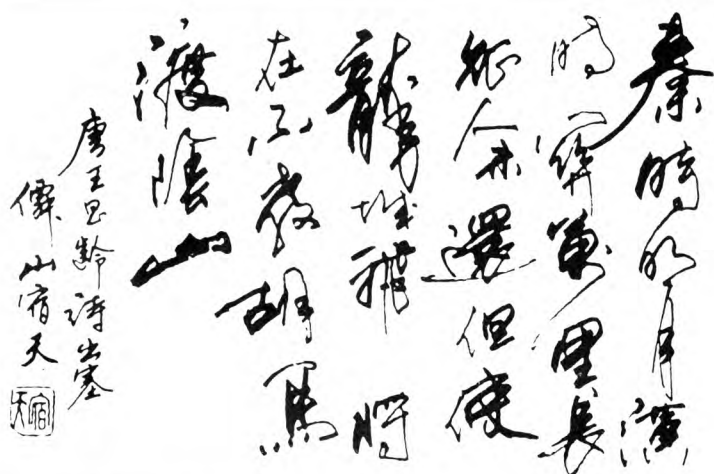 秦時明月漢
時關萬里長
征人未還但使
龍城飛將
在不教胡馬
渡陰山
唐王昌齡詩出塞
山宿天